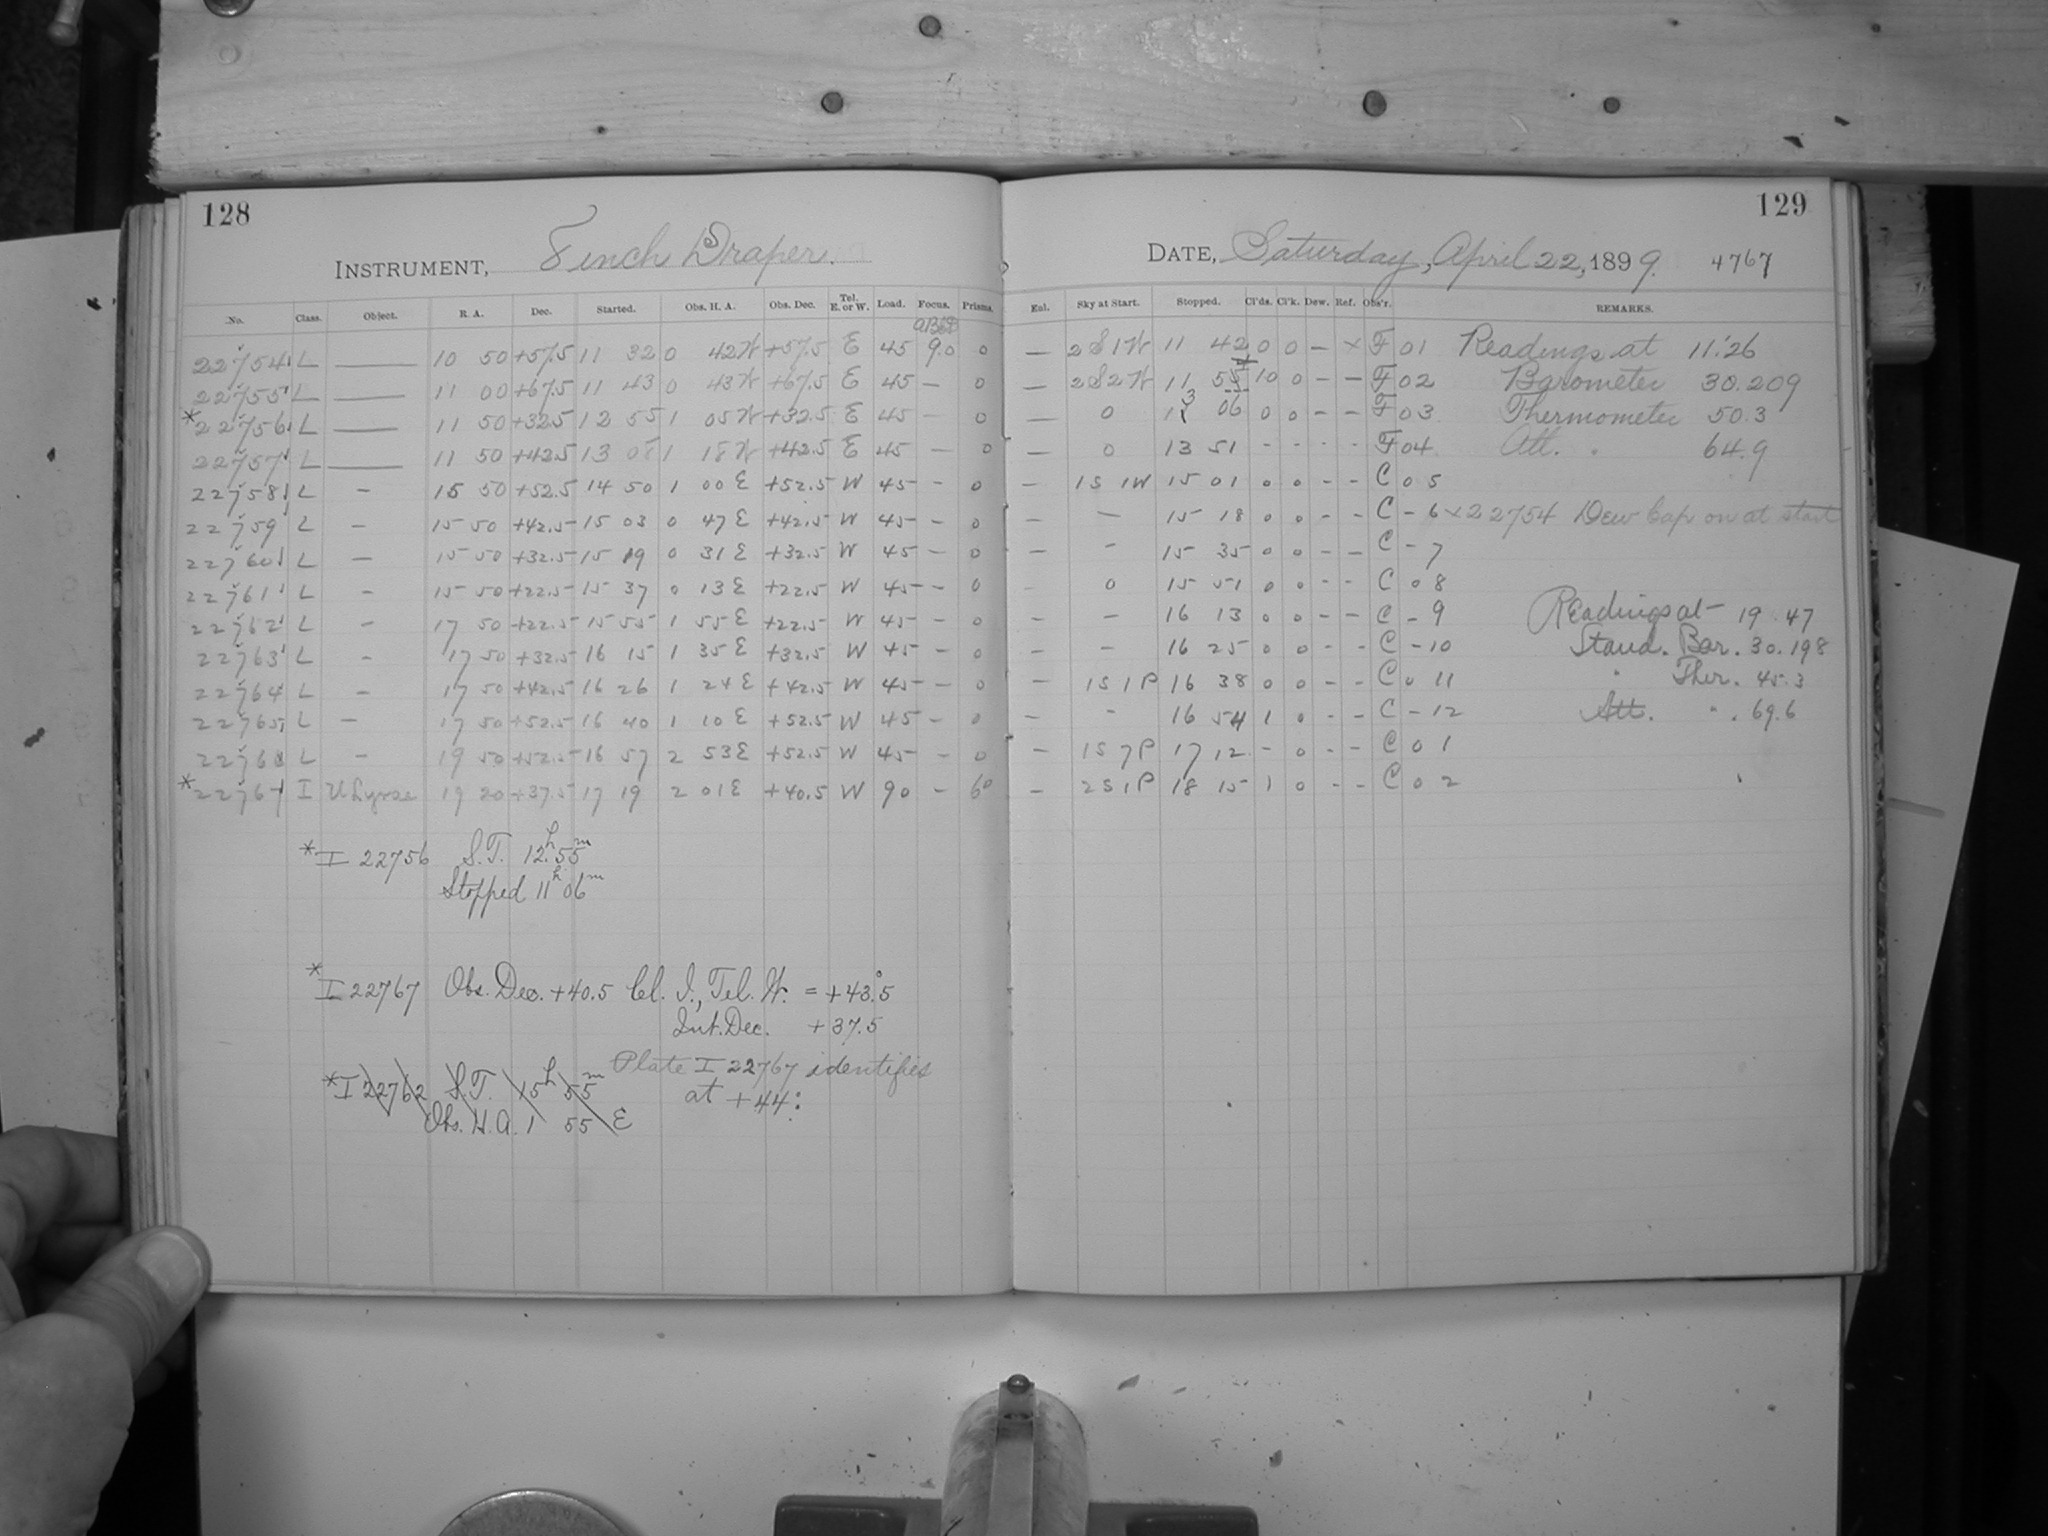 128
INSTRUMENT, 8 inch Draper.
No. Class. Object. R. A. Dec. Started. Obs. H. A. Obs. Dec. Tel. E. or W. Load. Focus. Prisms.
22754 L — 10 50 +57.5 11 32 0 42 W +57.5 E 45 9.0 0
22755 L — 11 00 +67.5 11 43 0 43 W +67.5 E 45 – 0
*22756 L — 11 50 +32.5 12 55 1 05 W +32.5 E 45 – 0
22757 L — 11 50 +42.5 13 08 1 18 W +42.5 E 45 – 0
22758 L – 15 50 +52.5 14 50 1 00 E +52.5 W 45 – 0
22759 L – 15 50 +42.5 15 03 0 47 E +42.5 W 45 – 0
22760 L – 15 50 +32.5 15 19 0 31 E +32.5 W 45 – 0
22761 L – 15 50 +22.5 15 37 0 13 E +22.5 W 45 – 0
22762 L – 17 50 +22.5 15 55 1 55 E +22.5 W 45 – 0
22763 L – 17 50 +32.5 16 15 1 35 E +32.5 W 45 – 0
22764 L – 17 50 +42.5 16 26 1 24 E +42.5 W 45 – 0
22765 L – 17 50 +52.5 16 40 1 10 E +52.5 W 45 – 0
22766 L – 19 50 +52.5 16 57 2 53 E +52.5 W 45 – 0
*22767 I U Lyrae 19 20 +37.5 17 19 2 01 E +40.5 W 90 – 60
*I 22756 S.T. 12h 55m
Stopped 11h 06m
*I 22767 Obs. Dec. +40.5 Cl. I., Tel. W. = +43°.5
Int. Dec. +37.5
Plate I 22767 identifies
*I 22762 S.T. 15h 55m at +44:
Obs. H.A. 1 55 E
129
DATE, Saturday, April 22, 1899. 4767
Enl. Sky at Start. Stopped. Cl'ds. Cl'k. Dew. Ref. Obs'r. REMARKS.
– 2S1W 11 42 0 0 – x F 01 Readings at 11.26
– 2S2W 11 55 10 0 – – F 02 Barometer 30.209
– 0 13 06 0 0 – – F 03 Thermometer 50.3
– 0 13 51 - - - - F 04 Att. " 64.9
– 1S 1W 15 01 0 0 – – C 0 5
– – 15 18 0 0 – – C – 6 x 22754 Dew Cap on at start
– – 15 35 0 0 – – C – 7
– 0 15 51 0 0 – – C 0 8
– – 16 13 0 0 – – C – 9 Readings at – 19 47
– – 16 25 0 0 – – C – 10 Stand. Bar. 30.198
– 1S 1P 16 38 0 0 – – C 0 11 " Ther. 45.3
– – 16 54 1 0 – – C – 12 Att. " . 69.6
– 1S 7P 17 12 – 0 – – C 0 1
– 2S 1P 18 15 1 0 – – C 0 2